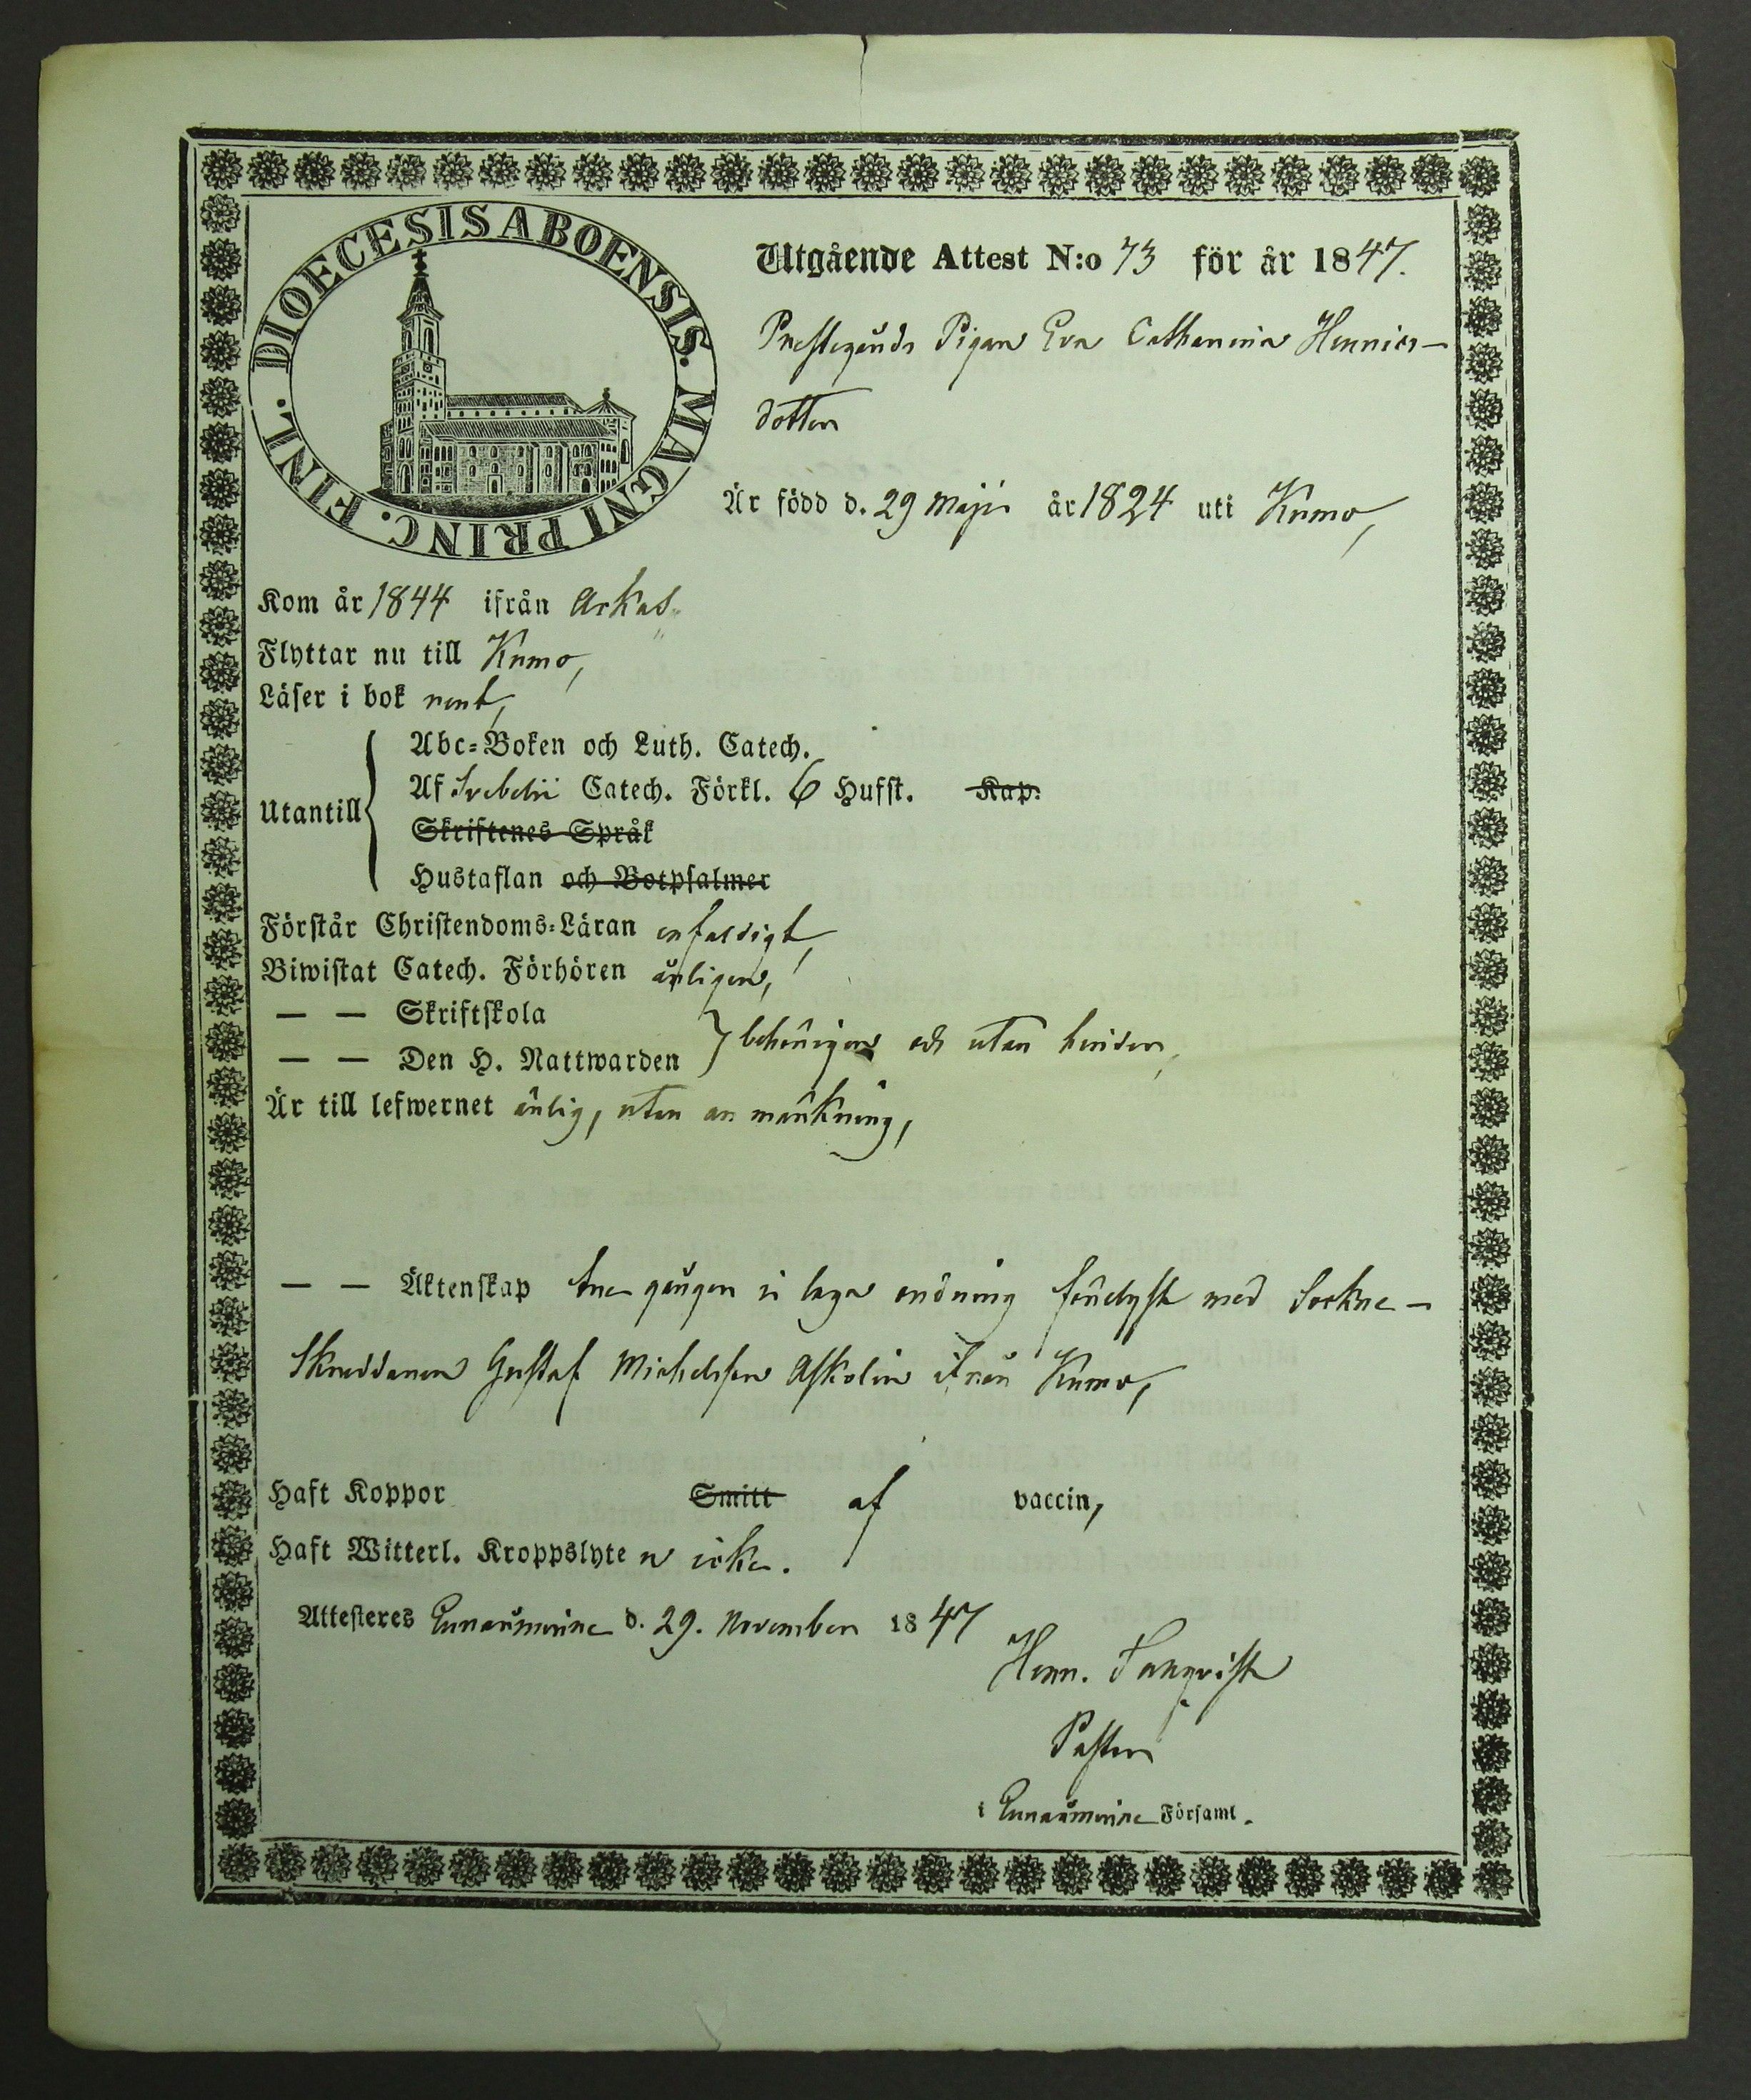 DIOECESIS ABOENSIS. MAGNI PRINC. FINL.
Utgående Attest N:o 73 för år 1847.
Prestegårds Pigan Eva Catharina Henrics-
dotter
Är född d. 29 Maji år 1824 uti Kumo,
Kom år 1844 ifrån Askas
Flyttar nu till Kumo,
Läser i bok rent,
Utantill
Abc-Boken och Luth. Catech.
Af Svebelii Catech. Förkl. 6 Hufst. Kap.
Skriftenes Språk
Hustaflan och Botpsalmer
Förstår Christendoms-Läran enfaldigt,
Biwistat Catech. Förhören årligen,
— — Skriftskola
— — Den H. Nattwarden } behörigen och utan hinder,
Är till lefwernet ärlig, utan anmärkning,
— — Äktenskap tre gånger i laga ordning förelyst med Sockne-
Skreddaren Gustaf Michelsson Askolin ifrån Kumo,
Haft Koppor Smitt af vaccin,
Haft Witterl. Kroppslyte n icke.
Attesteres Euraåminne d. 29. November 1847
Henr.
Pastor
i Euraåminne Församl.